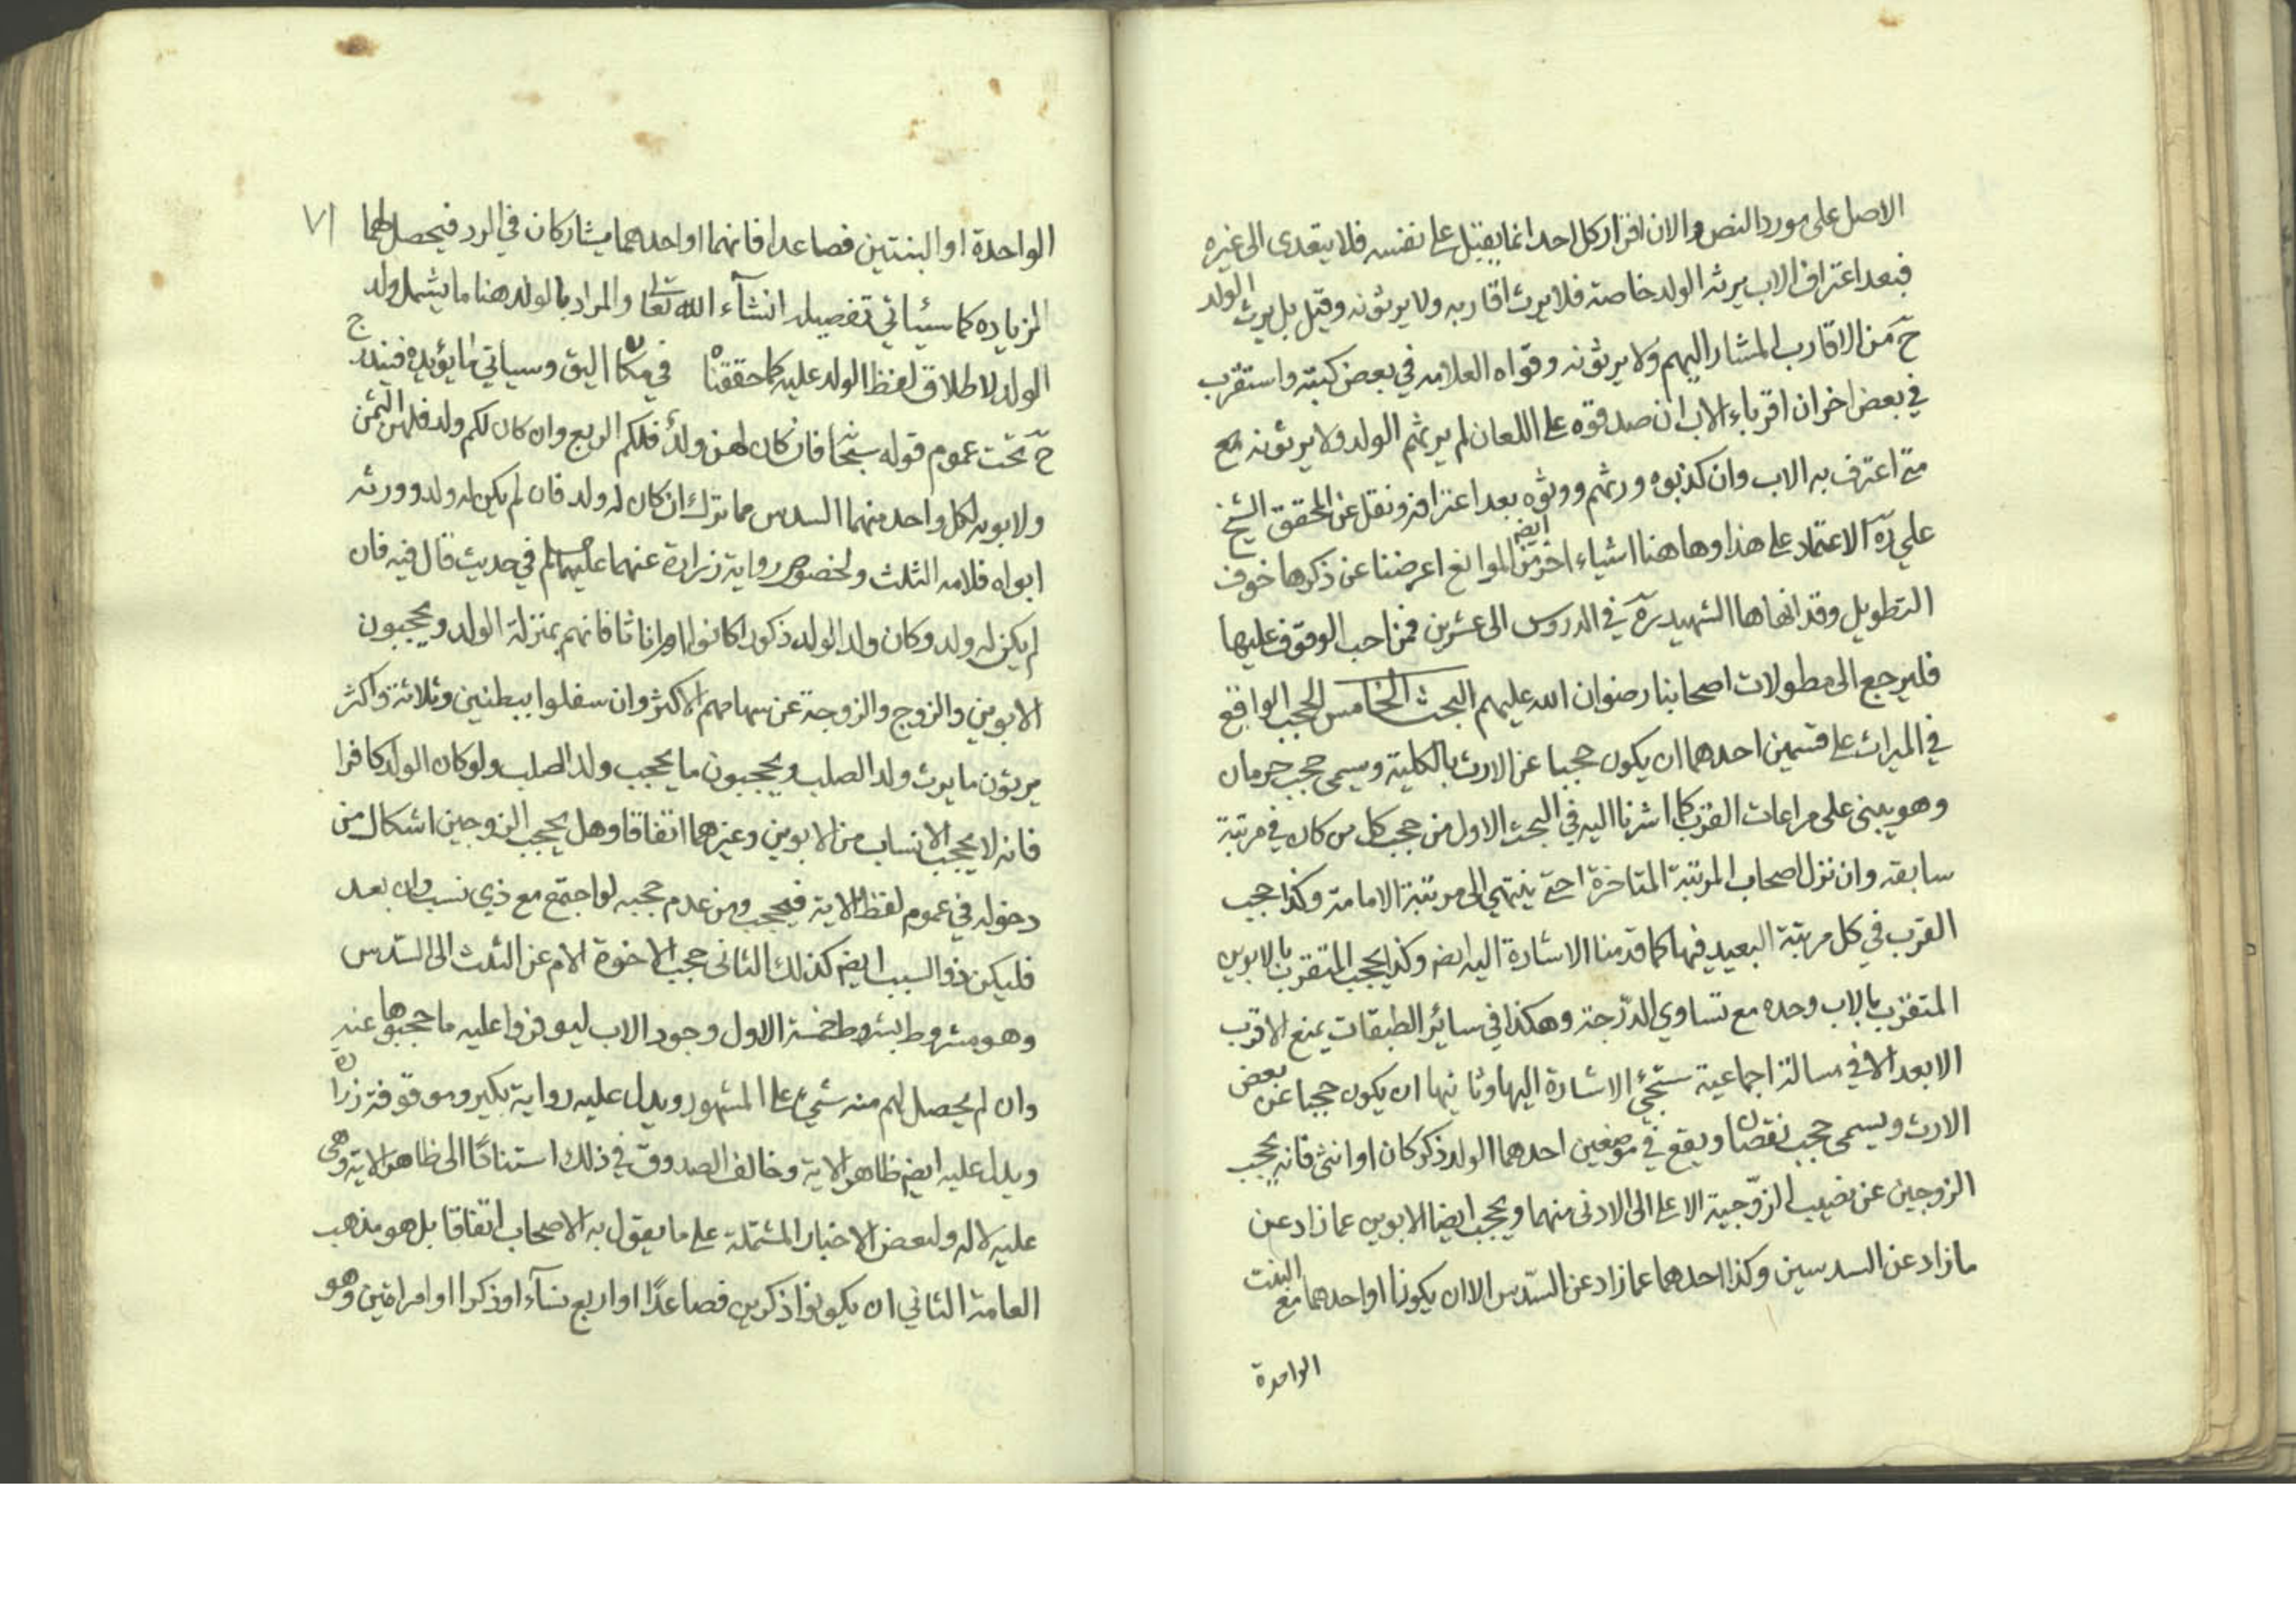 الاصل على مورد النص والان اقرار كل احد انما يقبل على نفسه فلا يتعدى الى غيره
فبعد اعتراف الاب يرثه الولد خاصة فلا يرث اقاربه ولا يرثونه وقيل بل يرث الولد
ح من الاقارب المشار اليهم ولا يرثونه وقواه العلامه في بعض كتبه واستقرب
في بعض اخر ان اقرباء الاب ان صدقوه على اللعان لم يرثهم الولد ولا يرثونه مع
متى اعترف به الاب وان كذبوه ورثهم وورثوه بعد اعترافه ونقل عن المحقق الشيخ
علي ره الاعتماد على هذا وها هنا اشياء اخر من الموانع ايضه اعرضنا عن ذكرها خوف
التطويل وقد انهاها الشهيد ره في الدروس الى عشرين فمن احب الوقوف عليها
فليرجع الى مطولات اصحابنا رضوان الله عليهم البحث الخامس الحجب الواقع
في الميراث على قسمين احدهما ان يكون حجبا عن الارث بالكلية ويسمى حجب حرمان
وهو يبنى على مراعات القرب كما اشرنا اليه في البحث الاول من حجب كل من كان في مرتبة
سابقه وان نزل اصحاب المرتبة المتاخرة حتى ينتهي الى مرتبة الامامة وكذا حجب
القرب في كل مرتبة البعيد فيها كما قدمنا الاشارة اليه ايضه وكذا يحجب المتقرب بالابوين
المتقرب بالاب وحده مع تساوي الدرجة وهكذا في سائر الطبقات يمنع الاقرب
الابعد الا في مسالة اجماعية ستجئ الاشارة اليها وثانيها ان يكون حجبا عن بعض
الارث ويسمى حجب نقصان ويقع في موضعين احدهما الولد ذكر كان او انثى فانه يحجب
الزوجين عن نصيب الزوجية الاعلى الى الادنى منهما ويحجب ايضا الابوين عما زاد عن
ما زاد عن السدسين وكذا احدهما عما زاد عن السدس الا ان يكونا او احدهما مع البنت
الواحدة
٧١
الواحدة او البنتين فصاعدا فانهما او احدهما يشاركان في الرد فيحصل لهما
الزياده كما سيئاتي تفصيله انشآء الله تعالى والمراد بالولد هنا ما يشمل ولد
الولد لاطلاق لفظ الولد عليه كما حققناه في مكان اليق وسياتي ما يؤيده فيندرج
ح تحت عموم قوله سبحانه فان كان لهن ولد فلكم الربع وان كان لكم ولد فلهن الثمن
ولابويه لكل واحد منهما السدس مما ترك ان كان له ولد فان لم يكن له ولد وورثه
ابواه فلامه الثلث ولخصوص رواية زرارة عنهما عليهما لم في حديث قال فيه فان
لم يكن له ولد وكان ولد الولد ذكورا كانوا او اناثا فانهم بمنزلة الولد ويحجبون
الابوين والزوج والزوجة عن سهامهم الاكثر وان سفلوا ببطنين وثلاثة واكثر
يرثون ما يرث ولد الصلب ويحجبون ما يحجب ولد الصلب ولو كان الولد كافرا
فانه لا يحجب الانساب من الابوين وغيرهما اتفاقا وهل يحجب الزوجين اشكال من
دخوله في عموم لفظ الاية فيحجب ومن عدم حجبه لو اجتمع مع ذي نسب وان بعد
فليكن ذو السبب ايضه كذلك الثانى حجب الاخوة الام عن الثلث الى السدس
وهو مشروط بشروط خمسة الاول وجود الاب ليوفروا عليه ما حجبوها عنه
وان لم يحصل لهم منه شئ على المشهور ويدل عليه رواية بكير وموقوفة زراره
ويدل عليه ايضه ظاهر الاية وخالف الصدوق في ذلك استنادًا الى ظاهر الاية وهى
عليه لاله ولبعض الاخبار المشتملة على ما يقول به الاصحاب اتفاقا بل هو مذهب
العامة الثاني ان يكونوا ذكرين فصاعدًا او اربع نسآء او ذكرا او امراتين وهو